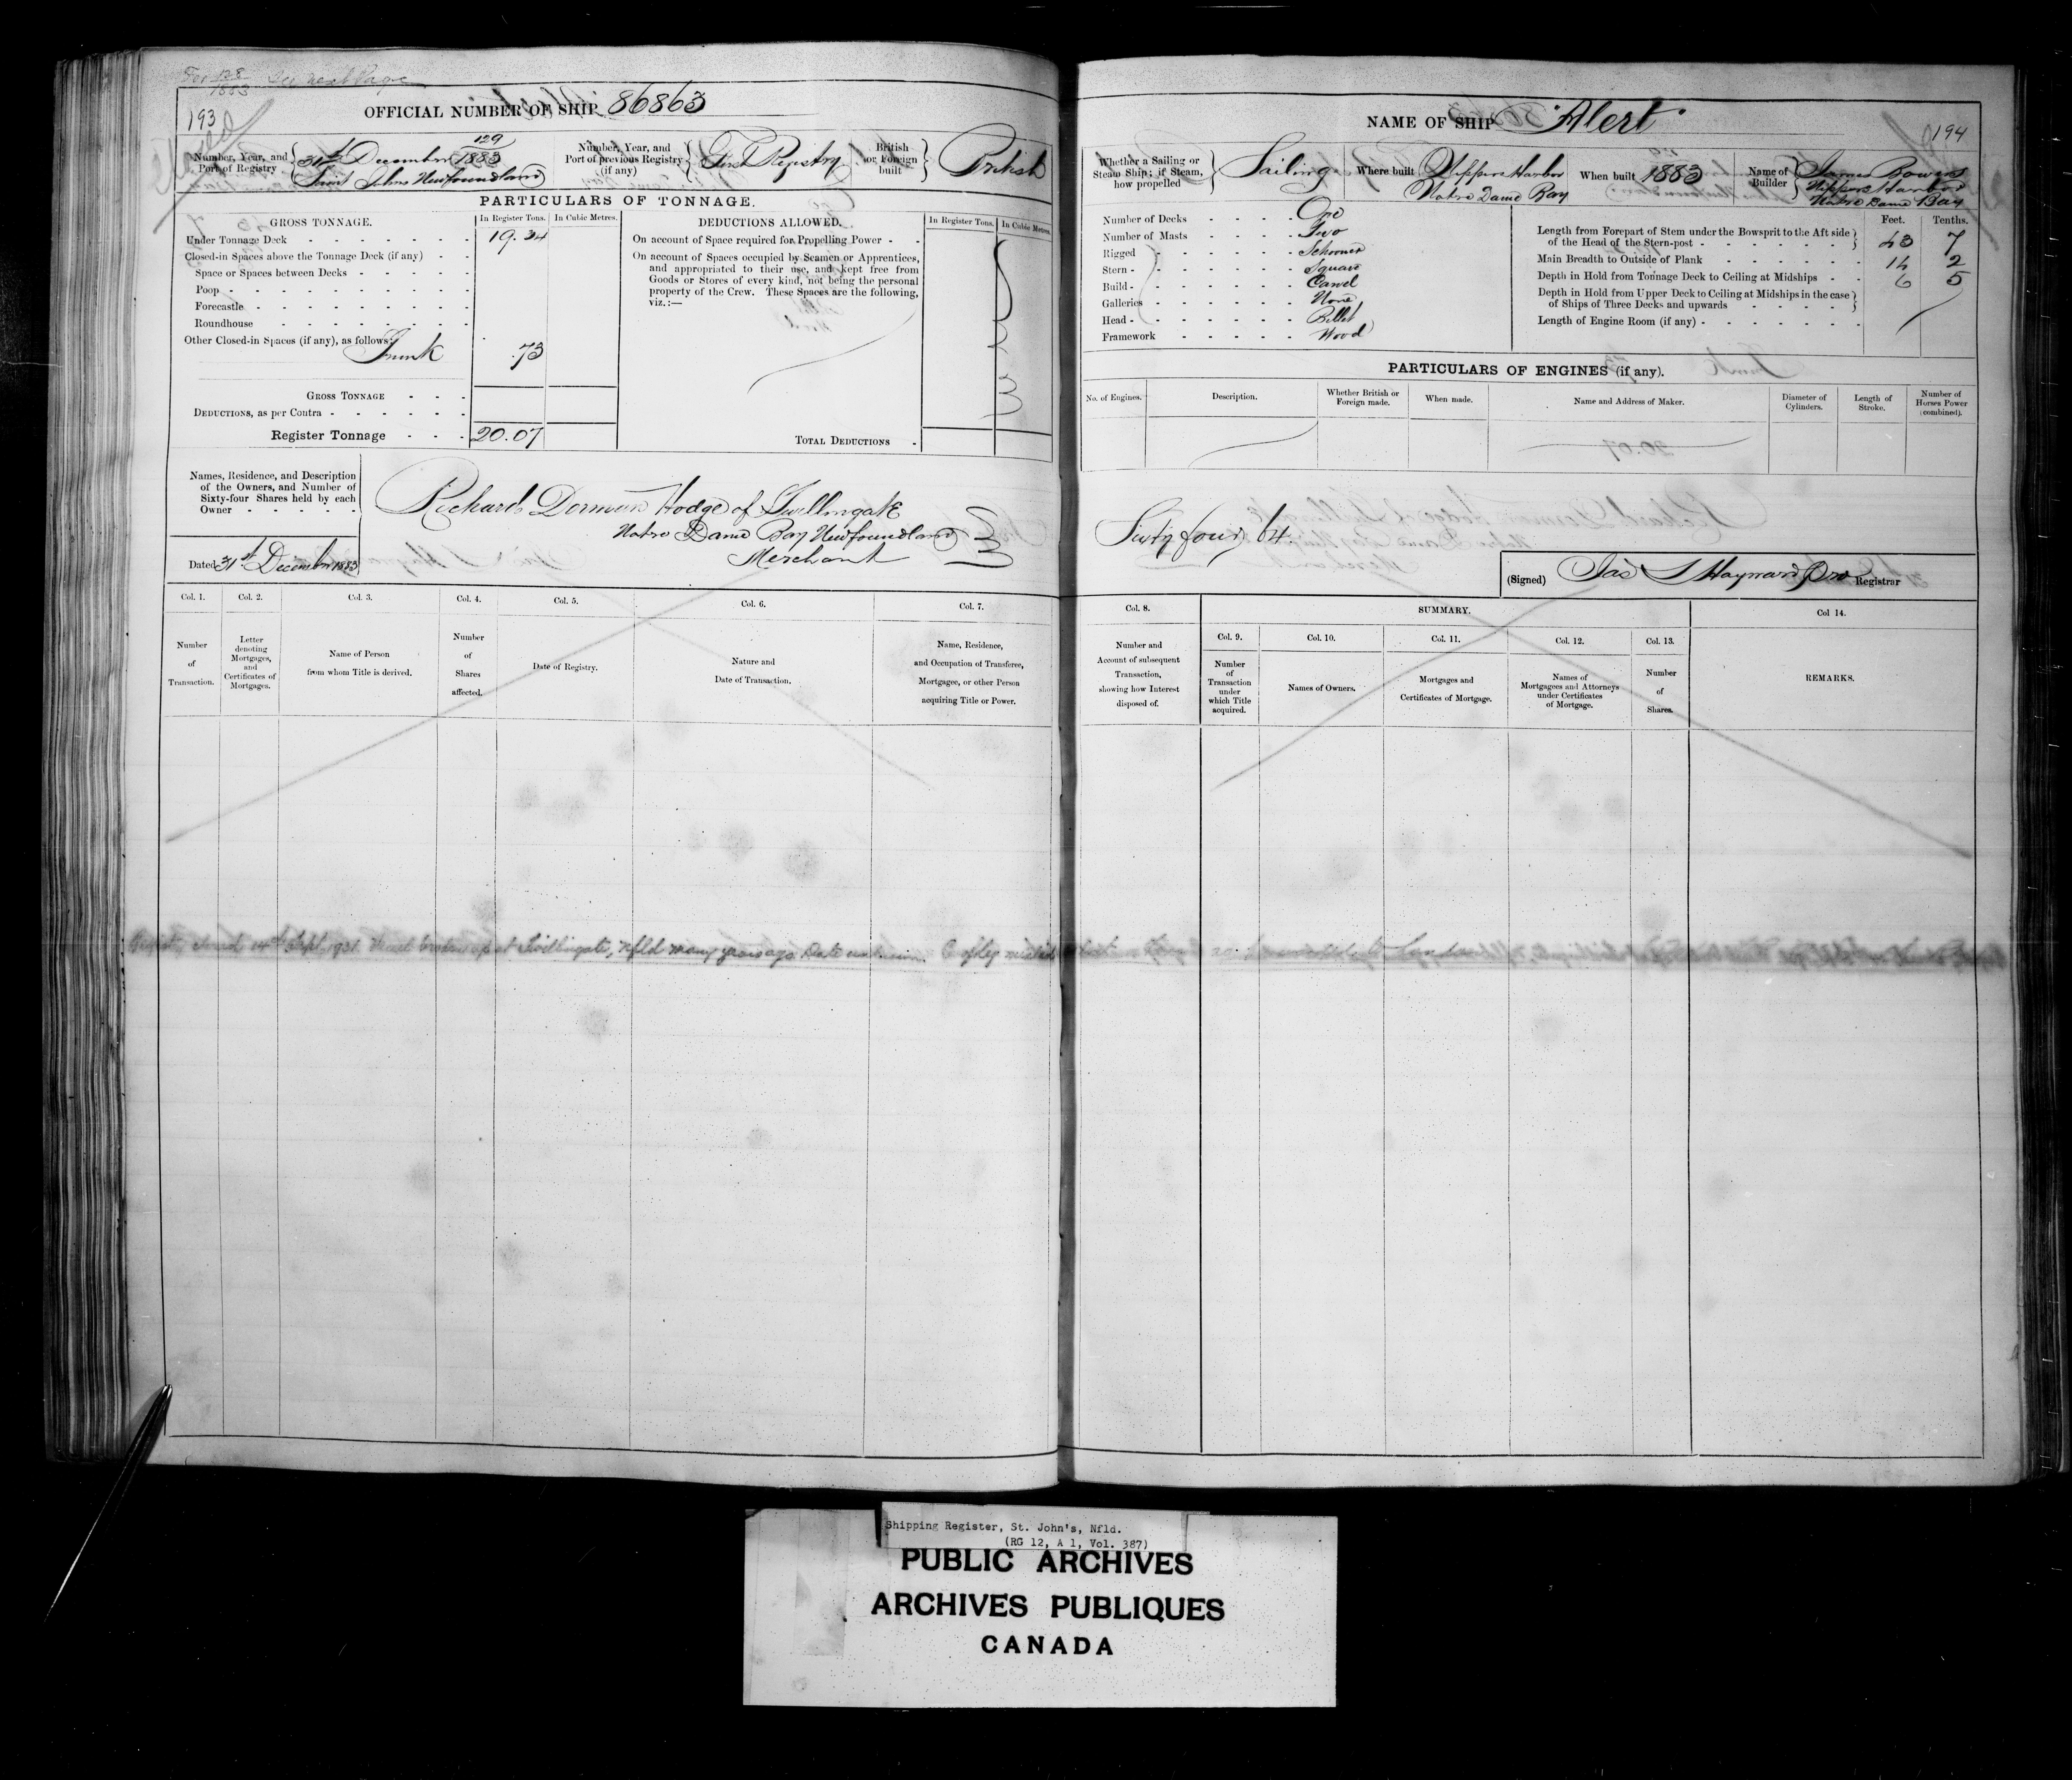 For 128/1883 See next Page
193
OFFICIAL NUMBER OF SHIP 86863
Closed
Number, Year, and Port of Registry
129
31st December 1883
Saint Johns Newfoundland
Number, Year, and Port of previous Registry (if any)
First Registry
British or Foreign built
British
PARTICULARS OF TONNAGE.
GROSS TONNAGE.
In Register Tons.
In Cubic Metres.
Under Tonnage Deck 19.34
Closed-in Spaces above the Tonnage Deck (if any)
Space or Spaces between Decks
Poop
Forecastle
Roundhouse
Other Closed-in Spaces (if any), as follows:
Trunk .73
GROSS TONNAGE
DEDUCTIONS, as per Contra
Register Tonnage 20.07
DEDUCTIONS ALLOWED.
In Register Tons.
In Cubic Metres.
On account of Space required for Propelling Power
On account of Spaces occupied by Seamen or Apprentices,
and appropriated to their use, and kept free from
Goods or Stores of every kind, not being the personal
property of the Crew. These Spaces are the following,
viz.:—
TOTAL DEDUCTIONS
Names, Residence, and Description
of the Owners, and Number of
Sixty-four Shares held by each
Owner
Dated 31st December 1883
Richard Dorman Hodge of Twillingate
Notre Dame Bay Newfoundland
Merchant
Col. 1.
Number
of
Transaction.
Col. 2.
Letter
denoting
Mortgages,
and
Certificates of
Mortgages.
Col. 3.
Name of Person
from whom Title is derived.
Col. 4.
Number
of
Shares
affected.
Col. 5.
Date of Registry.
Col. 6.
Nature and
Date of Transaction.
Col. 7.
Name, Residence,
and Occupation of Transferee,
Mortgagee, or other Person
acquiring Title or Power.
Registry closed 14th Sept. 1931. Vessel broken up at Twillingate, Nfld many years ago. Date unknown.
NAME OF SHIP "Alert"
194
Whether a Sailing or
Steam Ship; if Steam,
how propelled
Sailing
Where built
Nippers Harbor
Notre Dame Bay
When built 1883
Name of
Builder
James Bowers
Nippers Harbor
Notre Dame Bay
Number of Decks One
Number of Masts Two
Rigged Schooner
Stern Square
Build Carvel
Galleries None
Head Billet
Framework Wood
Feet. Tenths.
Length from Forepart of Stem under the Bowsprit to the Aft side
of the Head of the Stern-post 43 7
Main Breadth to Outside of Plank 14 2
Depth in Hold from Tonnage Deck to Ceiling at Midships 6 5
Depth in Hold from Upper Deck to Ceiling at Midships in the case
of Ships of Three Decks and upwards
Length of Engine Room (if any)
PARTICULARS OF ENGINES (if any).
No. of Engines.
Description.
Whether British or
Foreign made.
When made.
Name and Address of Maker.
Diameter of
Cylinders.
Length of
Stroke.
Number of
Horses Power
(combined).
Sixty four 64.
(Signed) Jas S Hayward Pro Registrar
Col. 8.
Number and
Account of subsequent
Transaction,
showing how Interest
disposed of.
SUMMARY.
Col. 9.
Number
of
Transaction
under
which Title
acquired.
Col. 10.
Names of Owners.
Col. 11.
Mortgages and
Certificates of Mortgage.
Col. 12.
Names of
Mortgagees and Attorneys
under Certificates
of Mortgage.
Col. 13.
Number
of
Shares.
Col 14.
REMARKS.
Shipping Register, St. John's, Nfld.
(RG 12, A 1, Vol. 387)
PUBLIC ARCHIVES
ARCHIVES PUBLIQUES
CANADA